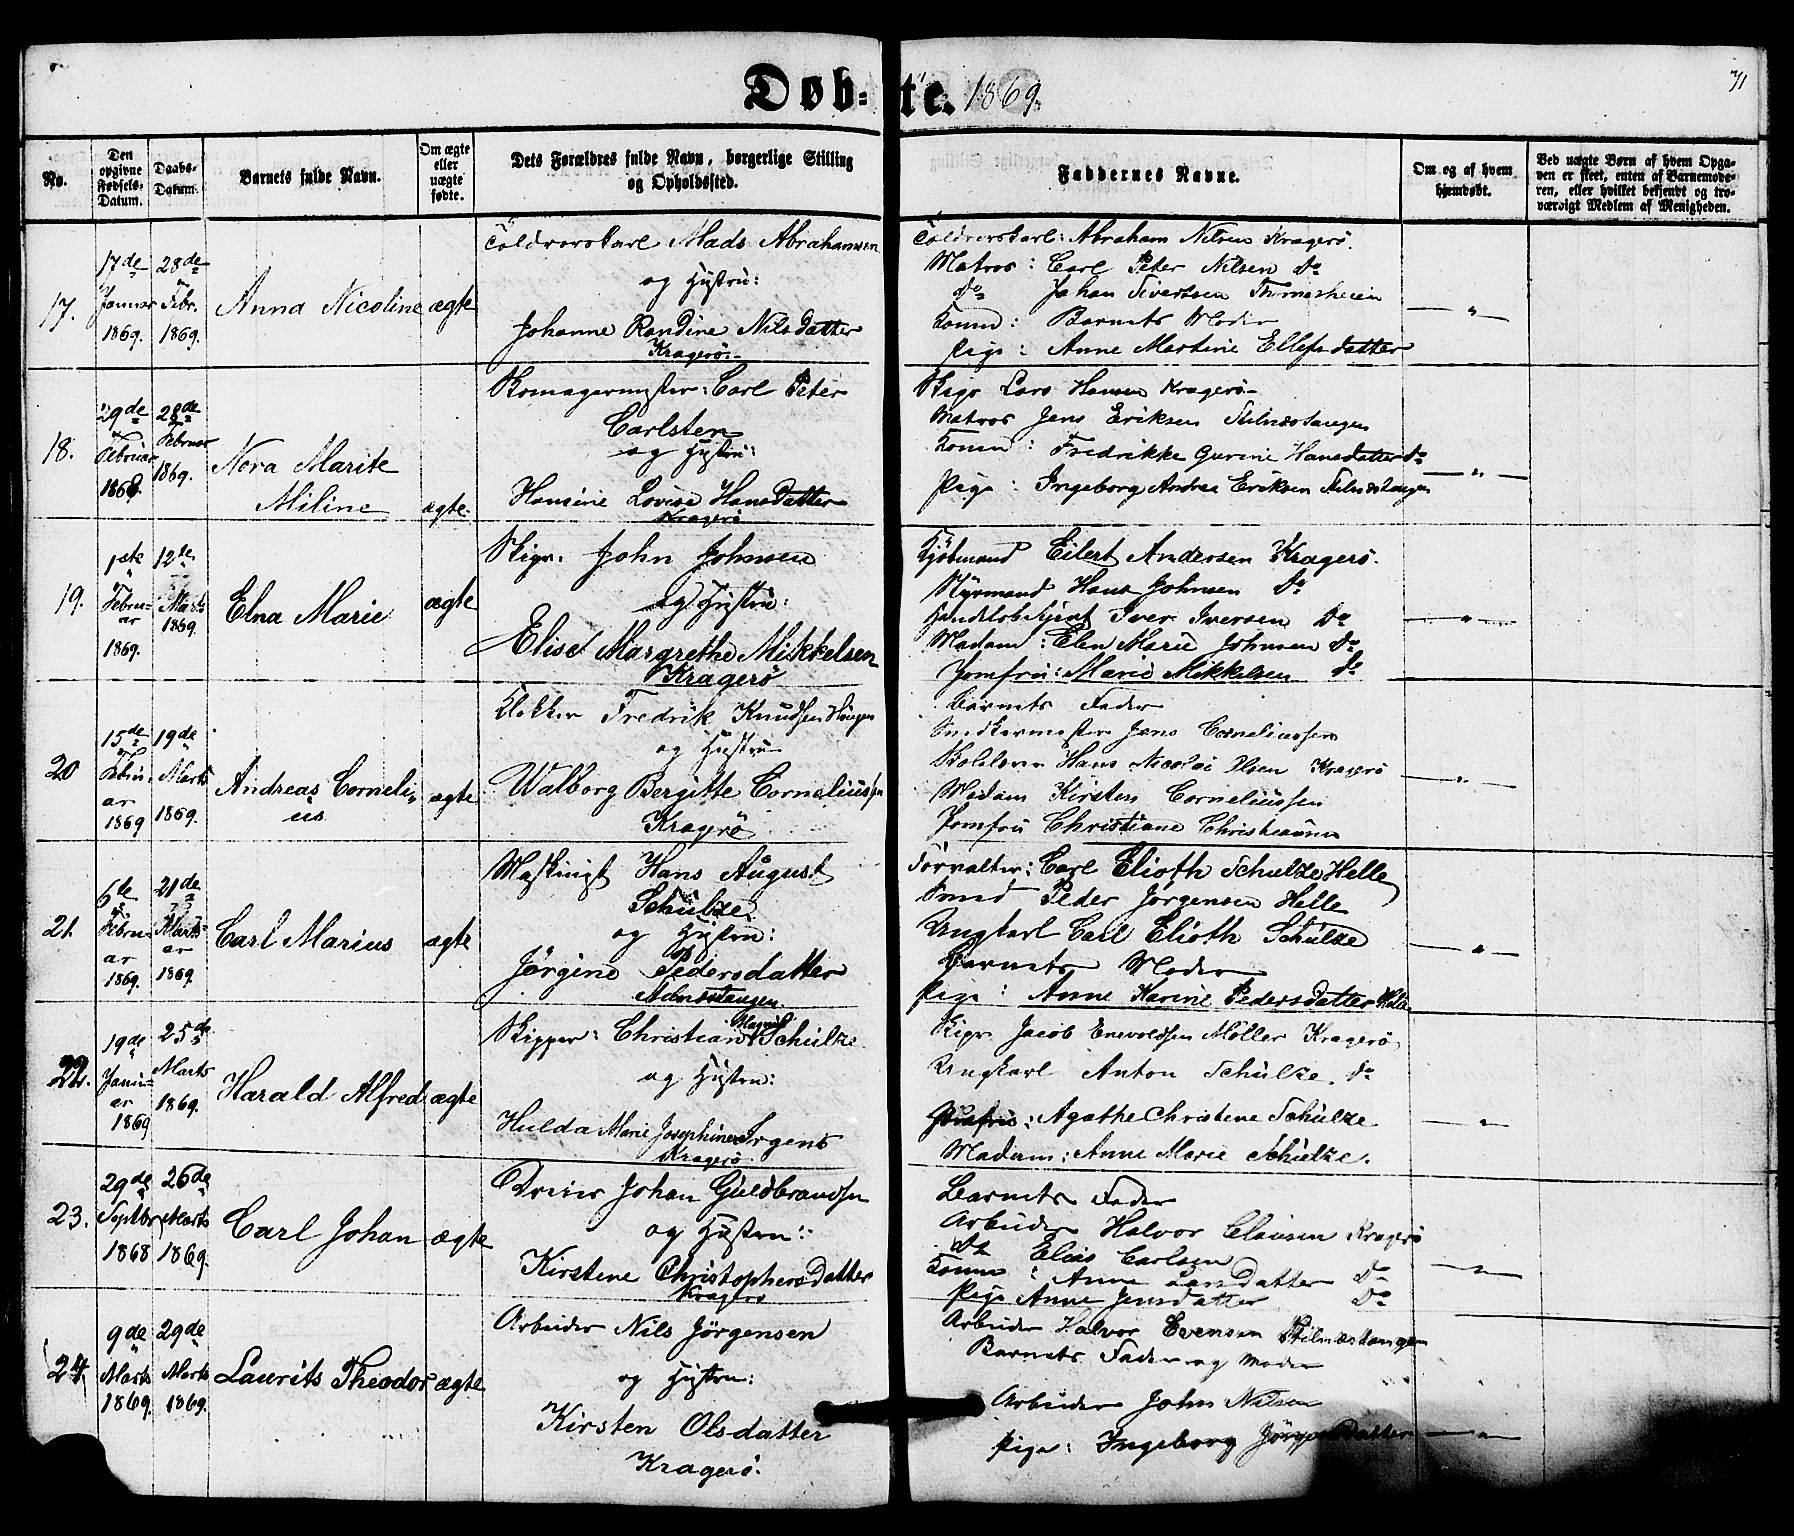 Døb-te. 1869.
71
No.
Den opgivne Fødsels-Datum.
Daabs-Datum.
Barnets fulde Navn.
Om ægte eller uægte fødte.
Dets Forældres fulde Navn, borgerlige Stilling og Opholdssted.
Faddernes Navne.
Om og af hvem hjemdøbt.
Ved uægte Børn af hvem Opgaven er skeet, enten af Barnemoderen, eller hvilket bekjendt og troværdigt Medlem af Menigheden.
17.
17de Januar 1869.
28de Febr. 1869.
Anna Nicoline
ægte
Toldrorskarl Mads Abrahamsen
og Hustru:
Johanne Randine Nilsdatter
Kragerö
Toldrorskarl: Abraham Nilsen Kragerö.
Matros: Carl Peter Nilsen do
do Johan Sivertsen
Konen: Barnets Moder
Pige: Anne Martine Ellefsdatter
— " —
18.
29de Februar 1868.
28de Februar 1869.
Nora Marite
Miline
ægte
Skomagermester: Carl Peter
Carlsten
og Hustru:
Hansine Lovise Hansdatter
Kragerö
Skipr Lars Hansen Kragerö
Matros Jens Eriksen Stilnæstangen
Konen: Fredrikke Gurine Hansdatter do
Pige: Ingeborg Andrea Eriksen Stilnæstangen
— " —
19.
1ste Februar 1869.
12te Marts 1869.
Elna Marie
ægte
Skipr. John Johnsen
og Hustru:
Elise Margrethe Mikkelsen
Kragerö
Kjøbmand Eilert Andersen Kragerö.
Styrmand Hans Johnsen do
Handelsbetjent Iver Iversen do
Madam: Elen Marie Johnsen do
Jomfru: Marie Mikkelsen do
— " —
20
15de Februar 1869
19de Marts 1869.
Andreas Corneli-
us
ægte
Klokker Fredrik Knudsen Haugen
og Hustru
Walborg Bergitte Corneliussen
Kragerö
Barnets Fader
Snedkermester Jens Corneliussen
Hans Nicolai Olsen Kragerö
Madam Kirsten Corneliussen
Jomfru Christiane Christiansen
— " —
21.
6te Februar 1869.
21de Marts 1869.
Carl Marius
ægte
Maskinist Hans August
Schulze
og Hustru:
Jørgine Pedersdatter
Forvalter: Carl Elioth Schulze Helle
Smed Peder Jørgensen Helle
Ungkarl Carl Elioth Schulze
Barnets Moder
Pige: Anne Karine Pedersdatter Helle
— " —
22.
19de Januar 1869
25de Marts 1869.
Harald Alfred
ægte
Skipper: Christian Magnus Schulze
og Hustru:
Hulda Marie Josephine Irgens
Kragerö
Skipr Jacob Enevoldsen Möller Kragerö
Ungkarl Anton Schulze. do
Jomfru: Agathe Christine Schulze
Madam: Anne Marie Schulze.
— " —
23.
29de Septbr 1868
26de Marts 1869.
Carl Johan
ægte
Dreier Johan Guldbrandsen
og Hustru:
Kirstene Christophersdatter
Kragerö
Barnets Fader
Arbeider Halvor Clausen Kragerö
do Elias Carlsen
Konen: Anne Larsdatter do
Pige Anne Jensdatter do
— " —
24.
9de Marts 1869.
29de Marts 1869.
Laurits Theodor
ægte
Arbeider Nils Jörgensen
og Hustru:
Kirsten Olsdatter
Kragerö.
Arbeider Halvor Evensen Stilnæstangen
Barnets Fader og Moder
Arbeider John Nilsen
Pige: Ingeborg Jörgensdatter
— " —